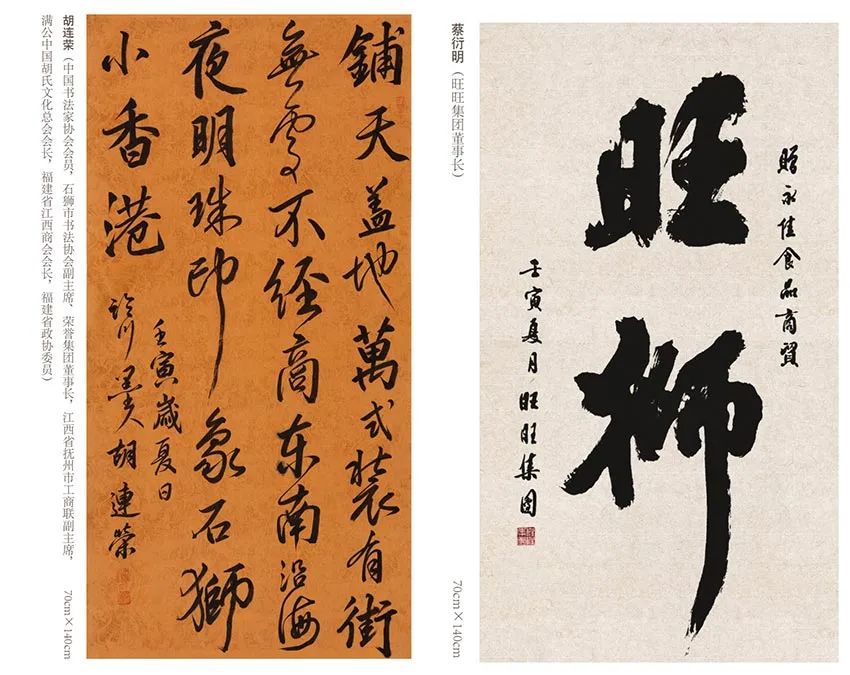 胡连荣（中国书法家协会会员，石狮市书法协会副主席、荣誉集团董事长，江西省抚州市工商联副主席，
满公中国胡氏文化总会会长，福建省江西商会会长，福建省政协委员）
70cm×140cm
鋪天盖地萬式裝有街
無處不經商东南沿海
夜明珠印象石獅
小香港
壬寅歲夏日
临川墨人胡連榮
蔡衍明（旺旺集团董事长）
70cm×140cm
贈永佳食品商貿
旺狮
壬寅夏月 旺旺集团